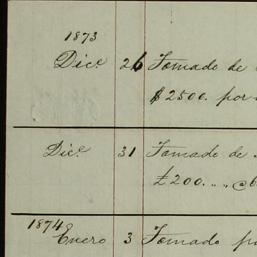 1873
Dice 26 Tomado de
$2500. por
Dice. 31 Tomado de
£200.... @6
1874
Enero 3 Tomado po